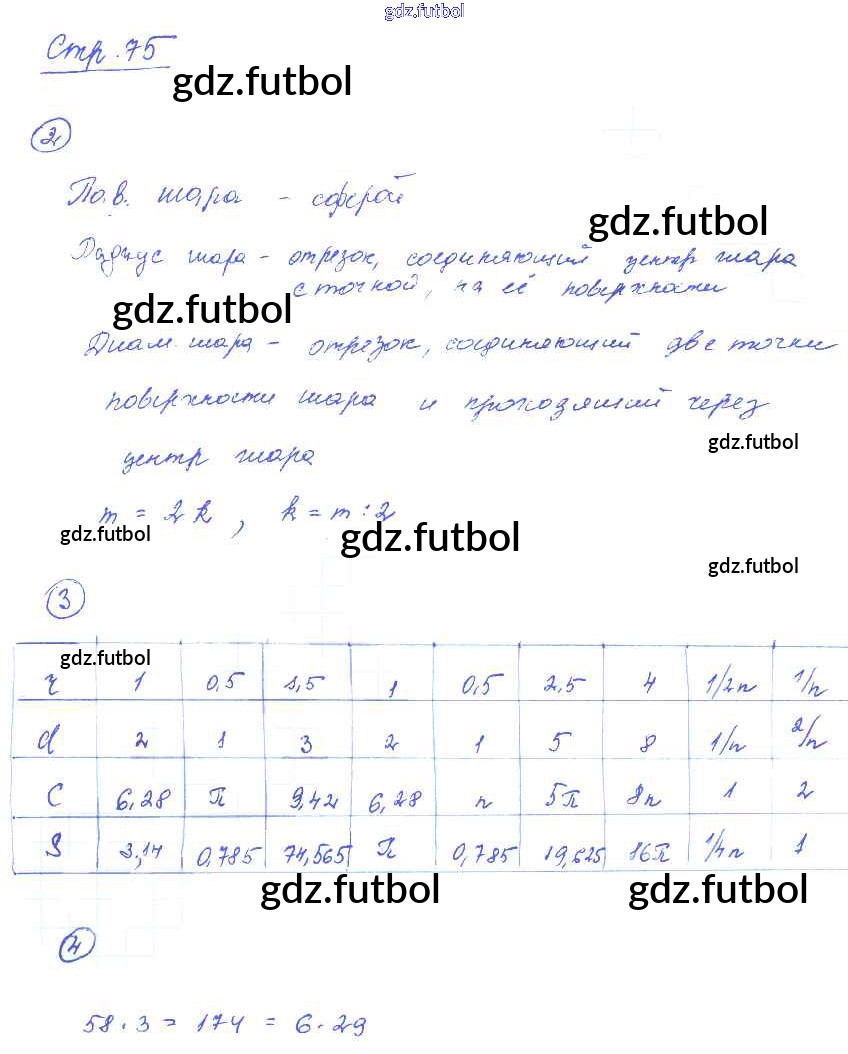 gdz.futbol
Стр. 75
gdz.futbol
2
Пов. шара - сферой
gdz.futbol
Радиус шара - отрезок, соединяющий центр шара
с точкой, на её поверхности
gdz.futbol
Диам. шара - отрезок, соединяющий две точки
поверхности шара и проходящий через
gdz.futbol
центр шара
m = 2k, k = m : 2
gdz.futbol gdz.futbol
gdz.futbol
3
gdz.futbol
r 1 0,5 1,5 1 0,5 2,5 4 1/2π 1/π
d 2 1 3 2 1 5 8 1/π 2/π
C 6,28 π 9,42 6,28 π 5π 8π 1 2
S 3,14 0,785 74,565 π 0,785 19,625 16π 1/4π 1
gdz.futbol gdz.futbol
4
58 · 3 = 174 = 6 · 29